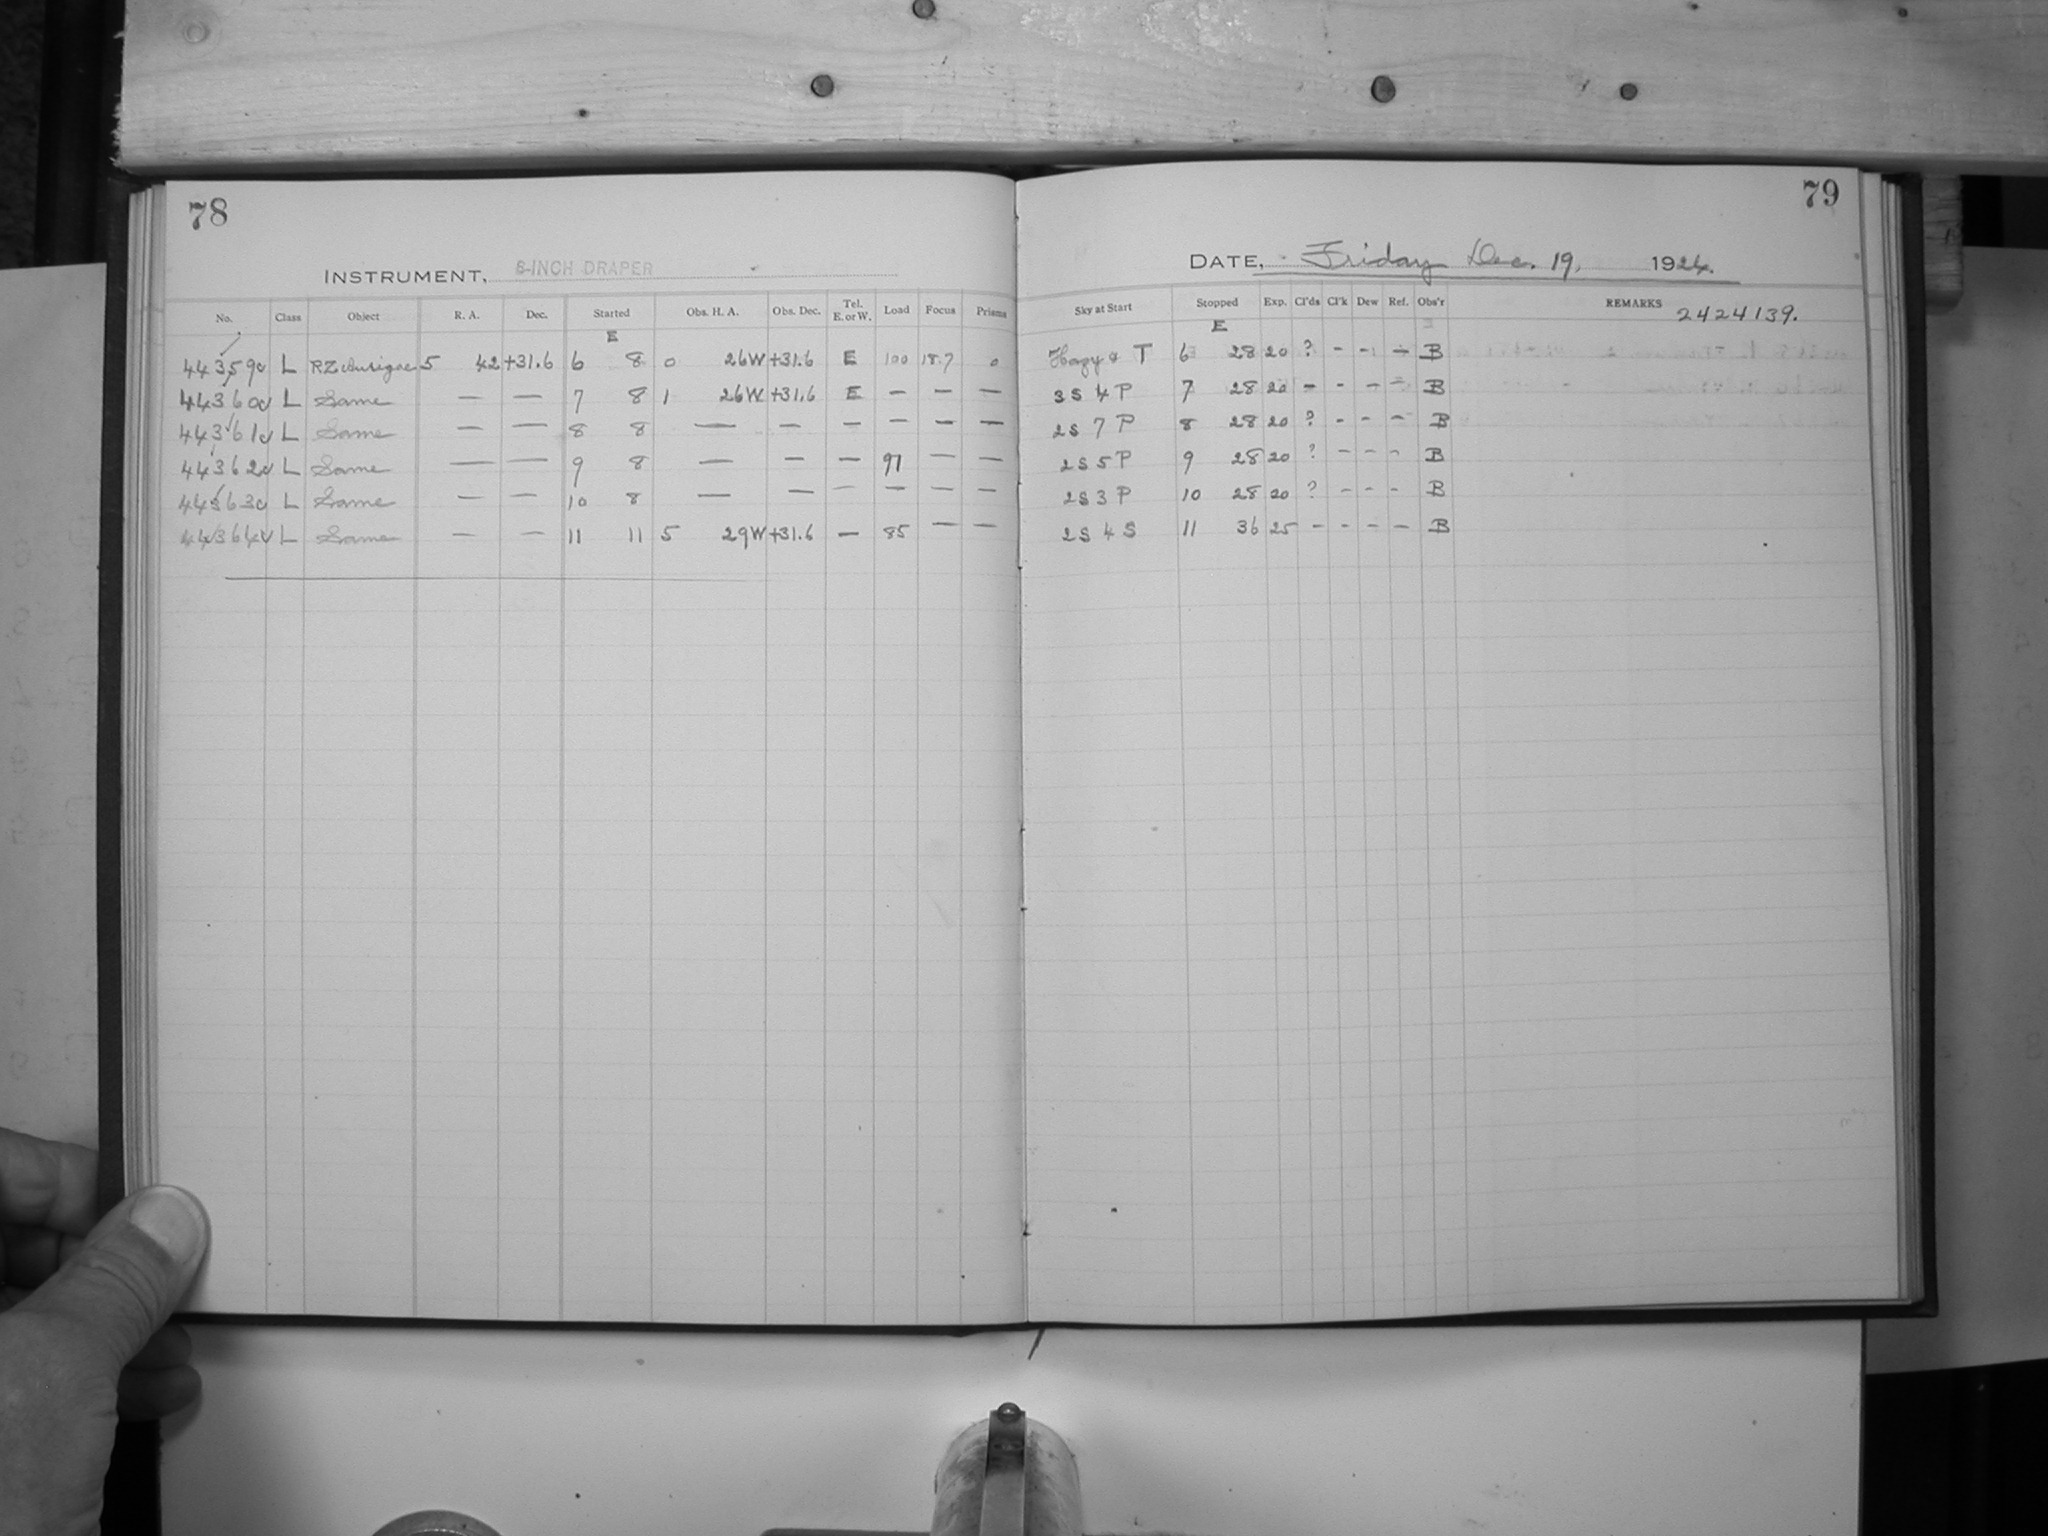 78
INSTRUMENT, 8-INCH DRAPER
No. Class Object R. A. Dec. Started Obs. H. A. Obs. Dec. Tel. E. or W. Load Focus Prisms
E
44359 L RZ Aurigae 5 42 +31.6 6 8 0 26W +31.6 E 100 18.7 0
44360 L Same — — 7 8 1 26W +31.6 E — — —
44361 L Same — — 8 8 — — — — — —
44362 L Same — — 9 8 — — — 97 — —
44363 L Same — — 10 8 — — — — — —
44364 L Same — — 11 11 5 29W +31.6 — 85 — —
79
DATE, Friday Dec. 19, 1924.
Sky at Start Stopped Exp. Cl'ds Cl'k Dew Ref. Obs'r REMARKS 2424139.
E
Hazy & T 6 28 20 ? - - - B
3S 4P 7 28 20 - - - - B
2S 7P 8 28 20 ? - - - B
2S 5P 9 28 20 ? - - - B
2S 3P 10 28 20 ? - - - B
2S 4S 11 36 25 - - - - B